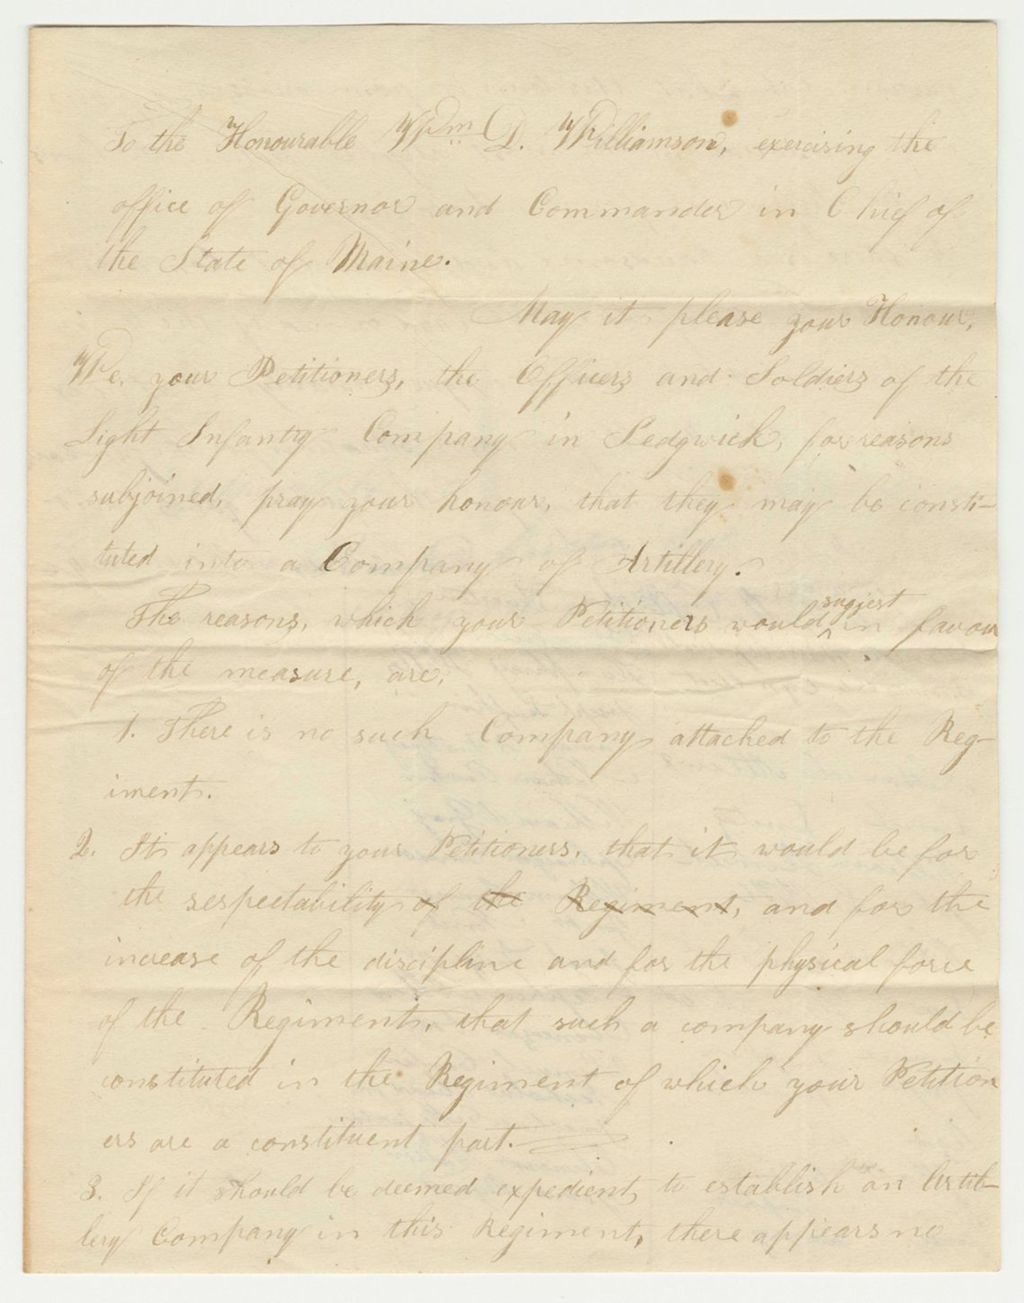 To the Honourable Wm D. Williamson, exercising the
office of Governor and Commander in Chief of
the State of Maine.
May it please your Honour,
We, your Petitioners, the Officers and Soldiers of the
Light Infantry Company in Sedgwick, for reasons
subjoined, pray your honour, that they may be consti-
tuted into a Company of Artillery.
The reasons, which your Petitioners would suggest in favour
of the measure, are,
1. There is no such Company attached to the Reg-
iment.
2. It appears to your Petitioners, that it would be for
the respectability of the Regiment, and for the
increase of the discipline and for the physical force
of the Regiment, that such a company should be
constituted in the Regiment of which your Petition
ers are a constituent part.
3. If it should be deemed expedient to establish an Artil-
lery Company in this Regiment, there appears no